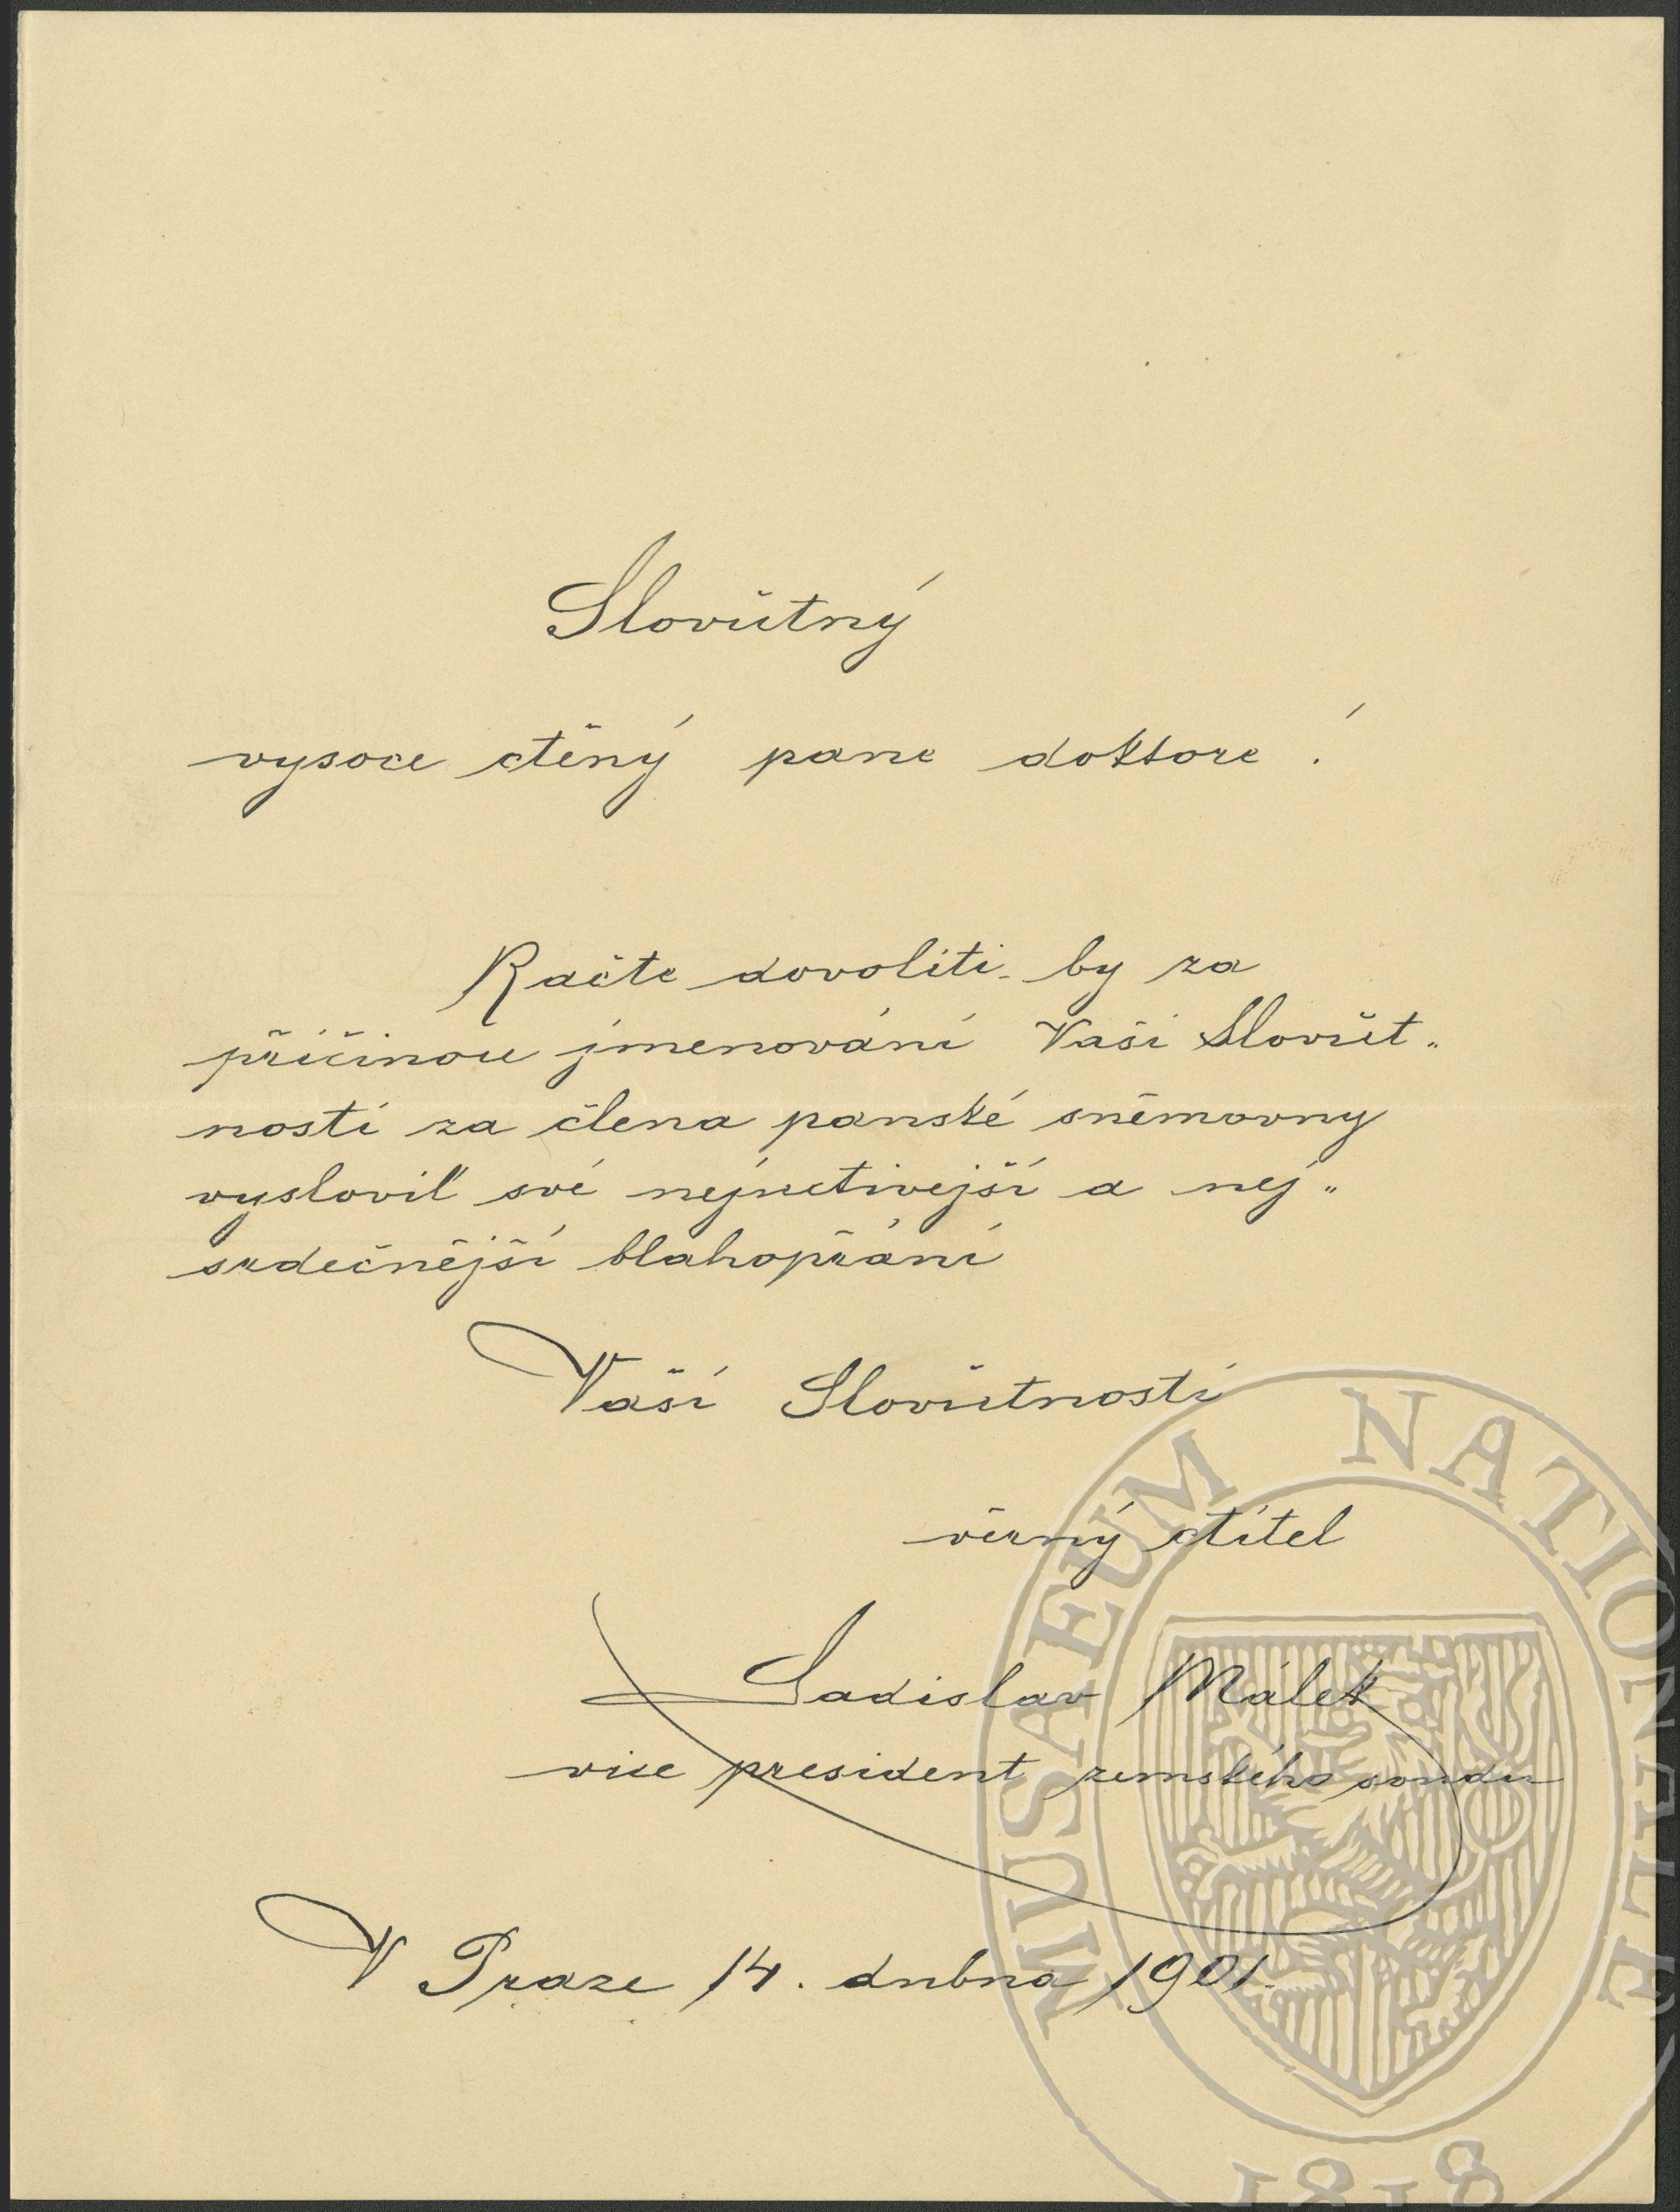 Slovutný
vysoce ctěný pane doktore!
Račte dovoliti by za
příčinou jmenování Vaší Slovut„
nosti za člena panské sněmovny
vyslovil své nejuctivejší a nej„
srdečnější blahopřání
Vaší Slovutnosti
věrný ctitel
Ladislav Málek
vice president zemského soudu
V Praze 14. dubna 1901.
MUSAEUM NATIONALE
1818